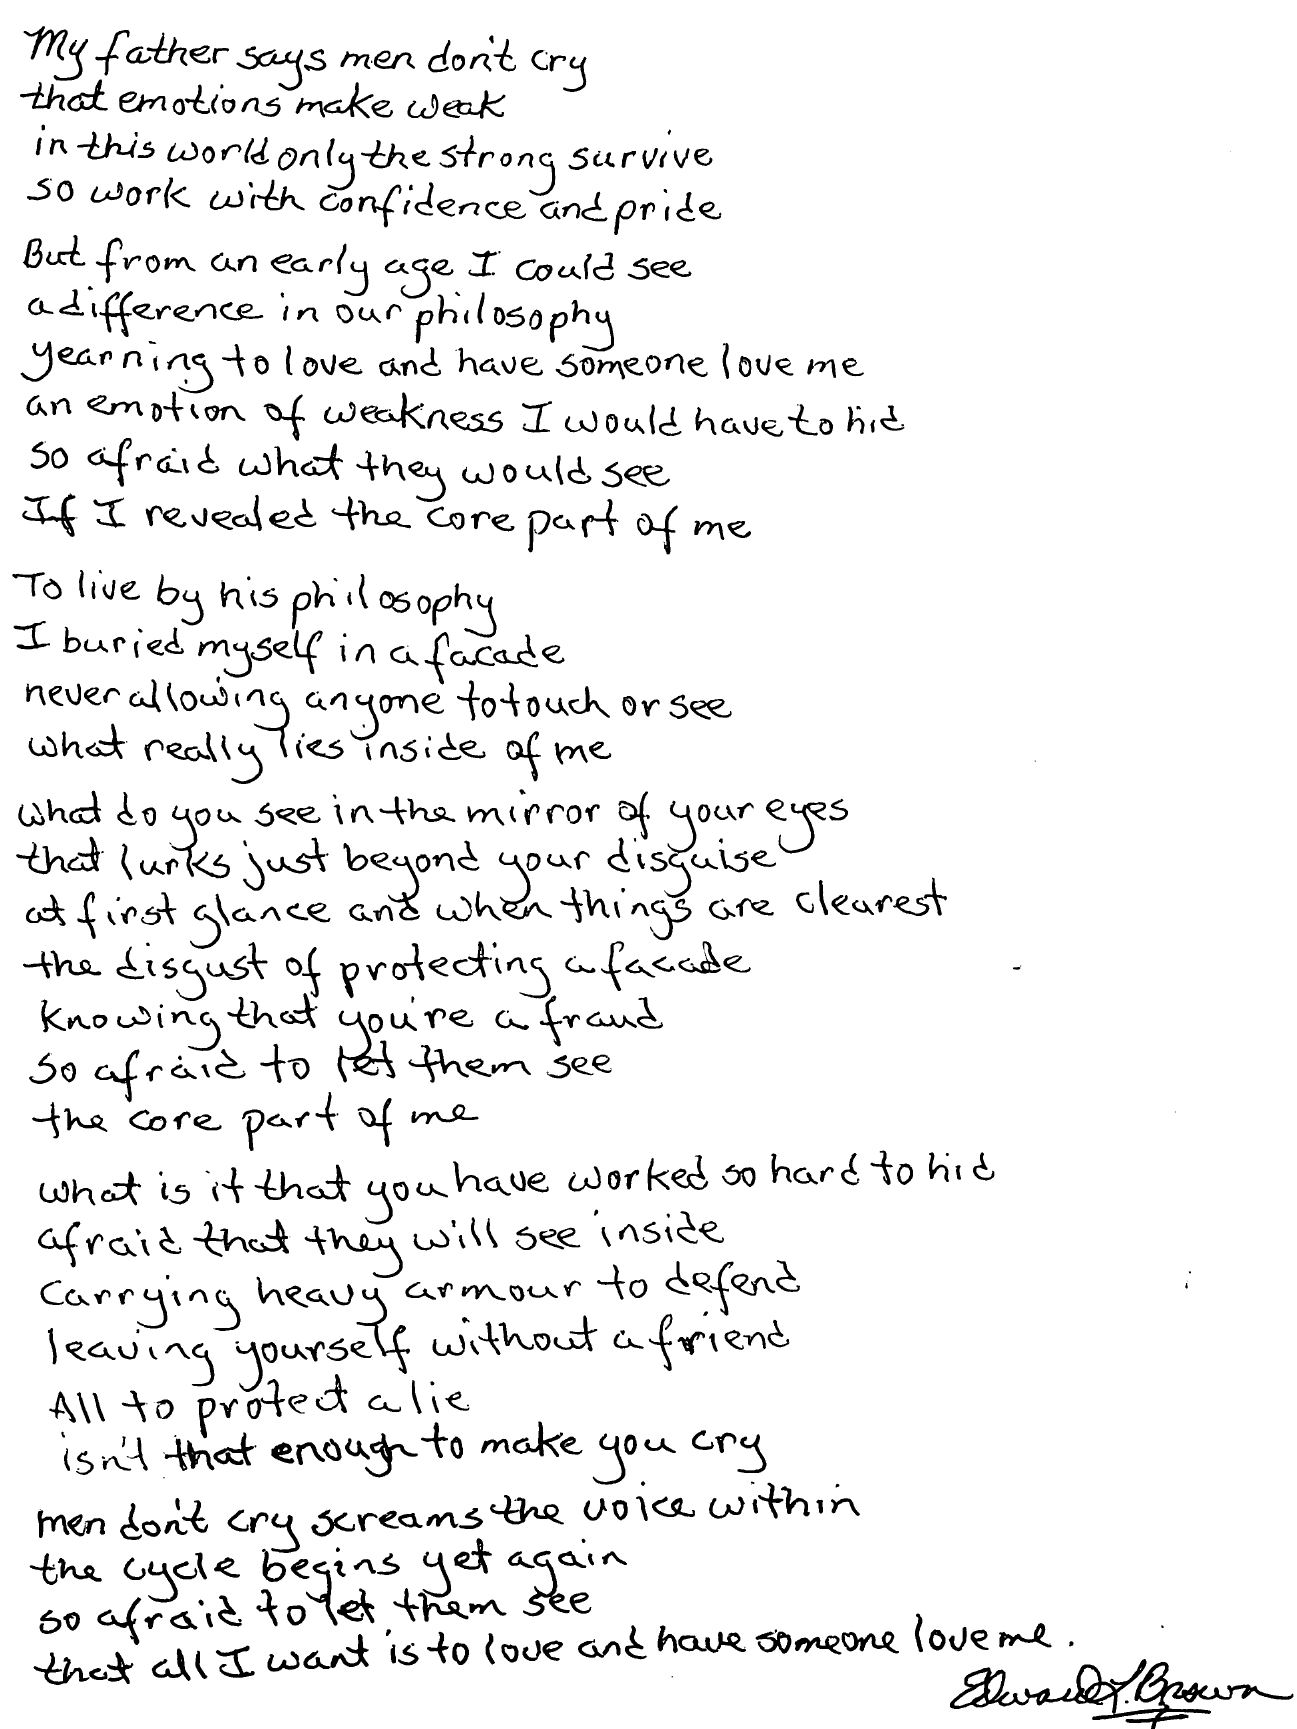 My father says men don't cry
that emotions make weak
in this world only the strong survive
so work with confidence and pride
But from an early age I could see
a difference in our philosophy
yearning to love and have someone love me
an emotion of weakness I would have to hid
so afraid what they would see
If I revealed the core part of me
To live by his philosophy
I buried myself in a facade
never allowing anyone to touch or see
what really lies inside of me
what do you see in the mirror of your eyes
that lurks just beyond your disguise
at first glance and when things are clearest
the disgust of protecting a facade
knowing that you're a fraud
so afraid to let them see
the core part of me
what is it that you have worked so hard to hid
afraid that they will see inside
carrying heavy armour to defend
leaving yourself without a friend
All to protect a lie
isn't that enough to make you cry
men don't cry screams the voice within
the cycle begins yet again
so afraid to let them see
that all I want is to love and have someone love me.
Edward L. Brown